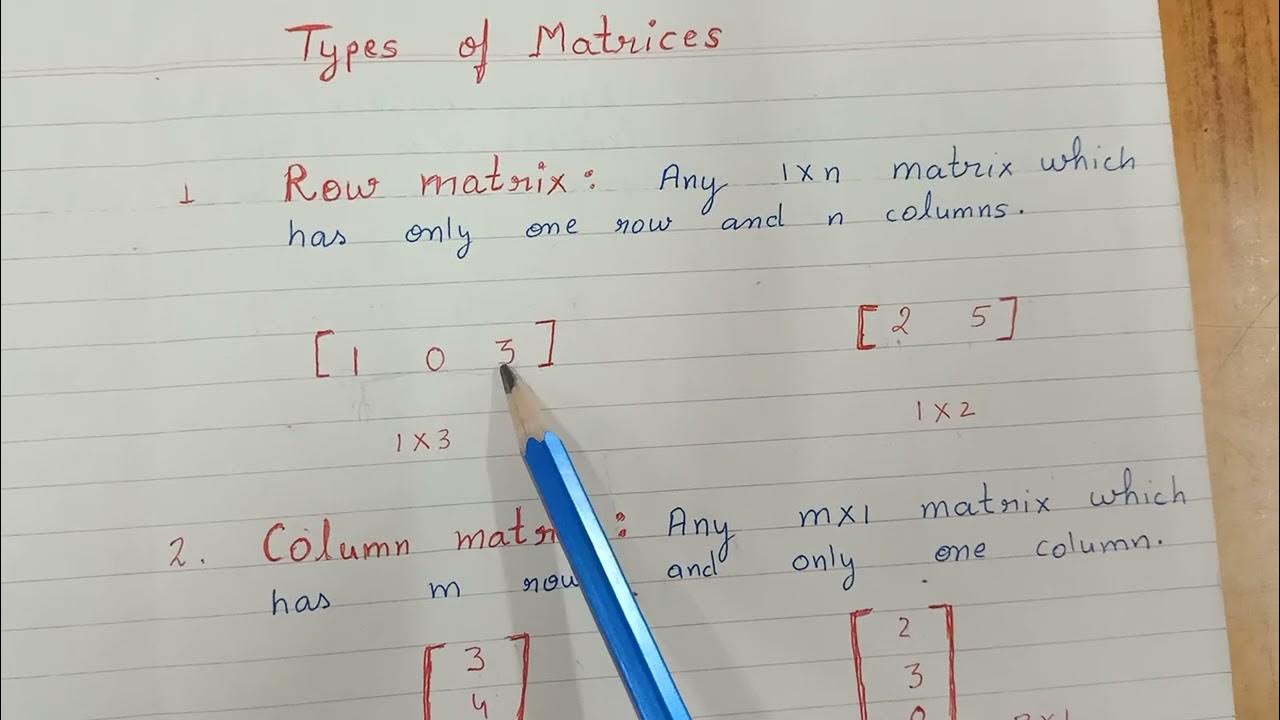 Types of Matrices
1 Row matrix: Any 1xn matrix which
has only one row and n columns.
[1 0 3] [2 5]
1 x 3 1 x 2
2. Column : Any mx1 matrix which
has m and only one column.
3 2
4 3